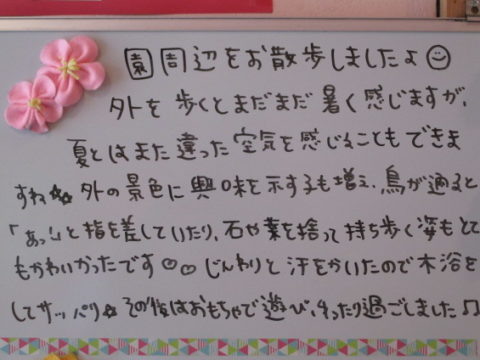 園周辺をお散歩しましたよ☺
外を歩くとまだまだ暑く感じますが、
夏とはまた違った空気を感じることもできま
すね☆☆外の景色に興味を示するも増え、鳥が通ると
「あっ!」と指を差していたり、石や葉を捨って持ち歩く姿もとて
もかわいかったです♡♡じんわりと汗をかいたので木浴を
してサッパリ☆その後はおもちゃで遊び、ゆったり過ごしました♫